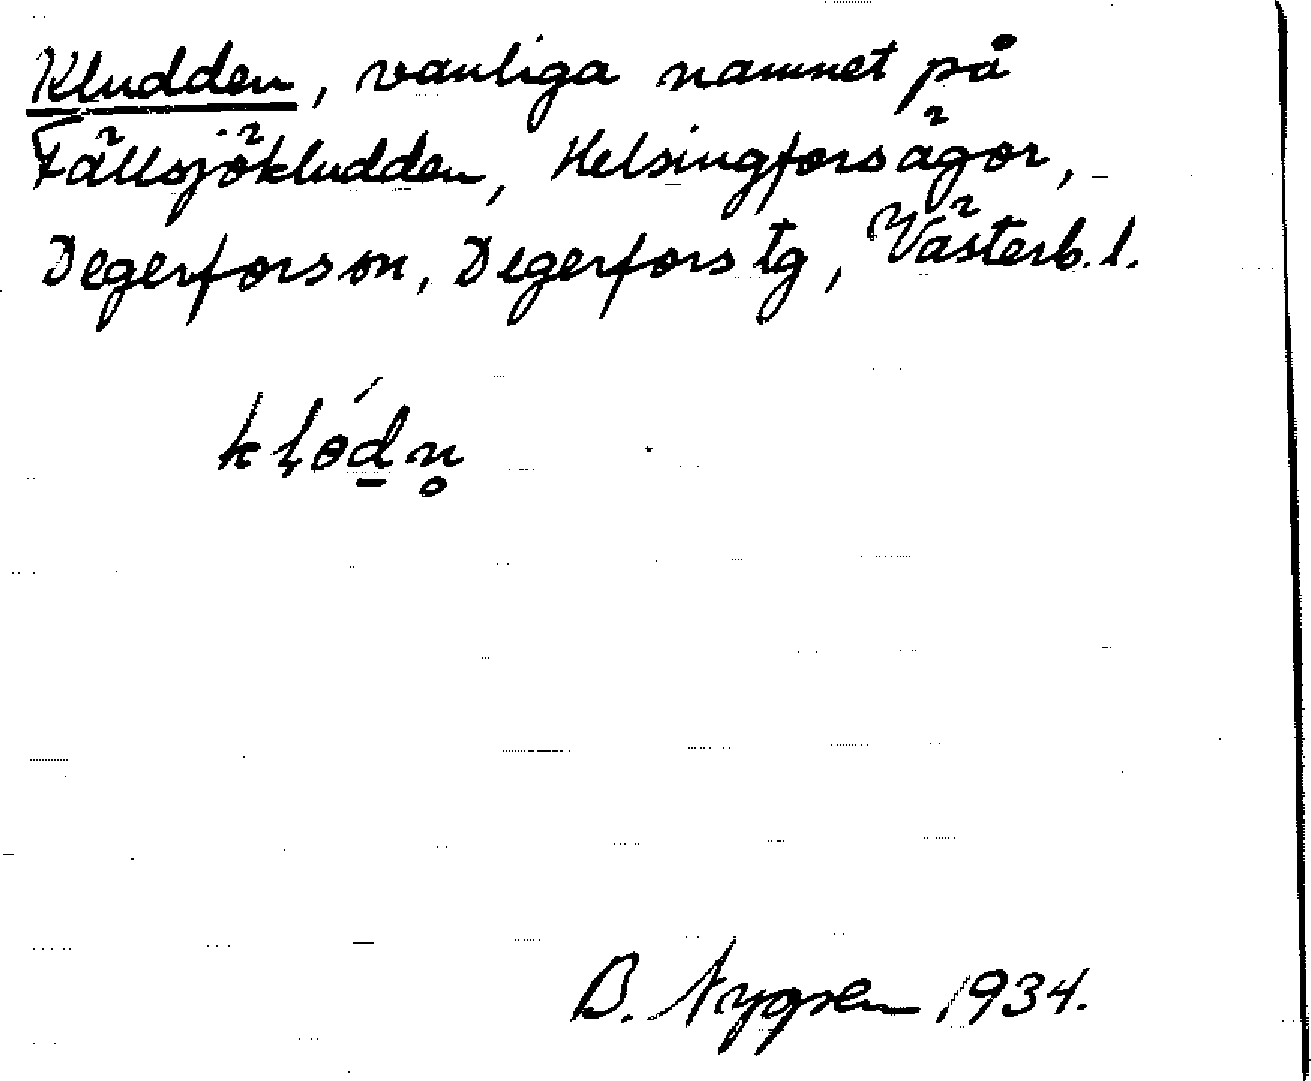 Kludden, vanliga namnet på
Fällsjökludden, Helsingfors ägor,
Degerfors sn, Degerfors tg, Västerb. l.
B. Nygren 1934.